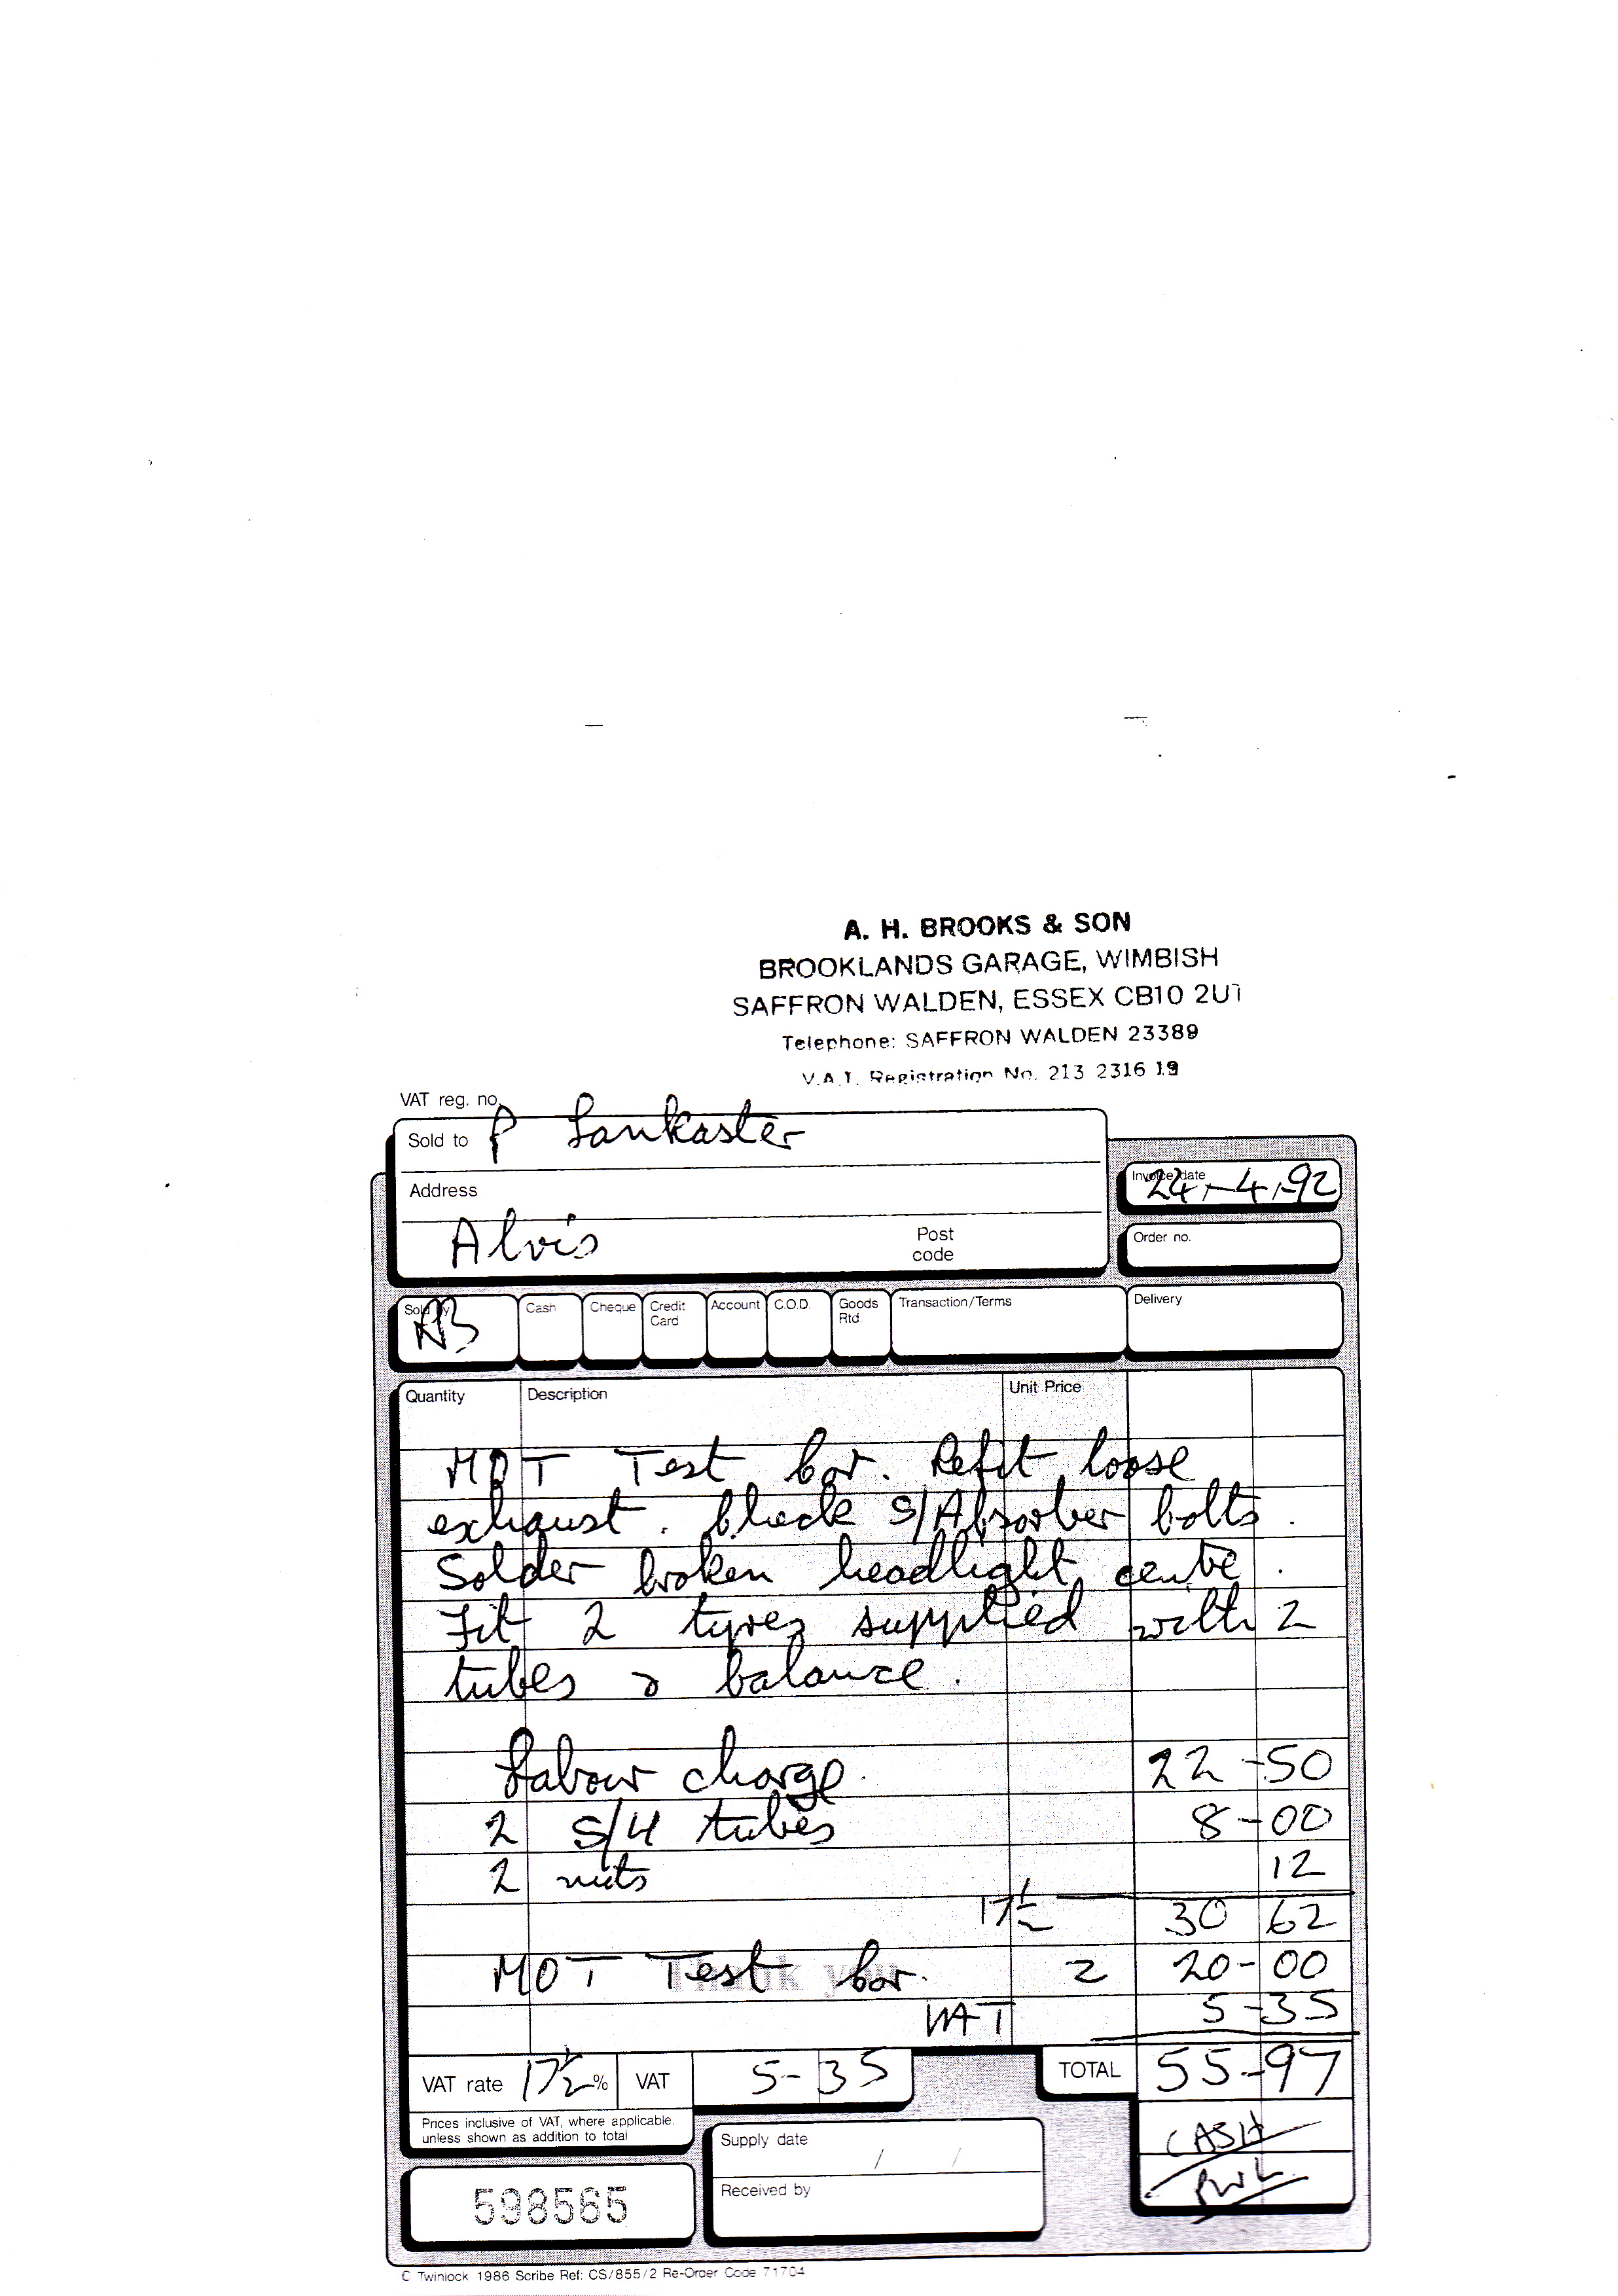 A. H. BROOKS & SON
BROOKLANDS GARAGE, WIMBISH
SAFFRON WALDEN, ESSEX CB10 2UT
Telephone: SAFFRON WALDEN 23389
V.A.T. Registration No. 213 2316 19
VAT reg. no.
Sold to P Lankaster
Invoice date 24-4-92
Address
Alvis
Post code
Order no.
Sold by
Cash
Cheque
Credit Card
Account
C.O.D.
Goods Rtd.
Transaction/Terms
Delivery
Quantity Description Unit Price
MOT Test car. Refit loose
exhaust. Check S/Absorber bolts.
Solder broken headlight centre.
Fit 2 tyres supplied with 2
tubes & balance.
Labour charge. 22-50
2 S/H tubes 8-00
2 nuts 12
17½ 30 62
MOT Test car. 2 20-00
Thank you
VAT 5-35
VAT rate 17½% VAT 5-35 TOTAL 55-97
Prices inclusive of VAT, where applicable,
unless shown as addition to total
CASH
Supply date / /
Received by
598565
© Twinlock 1986 Scribe Ref: CS/855/2 Re-Order Code 71704